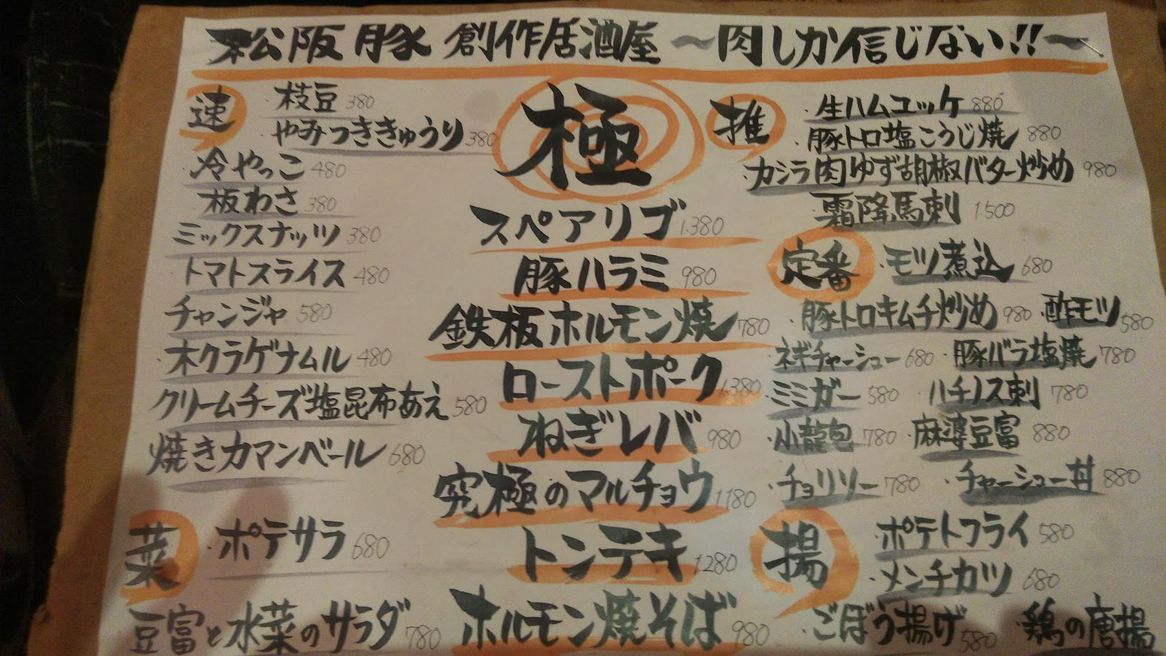 松阪豚 創作居酒屋 〜肉しか信じない!!〜
速
・枝豆 380
・やみつききゅうり 380
・冷やっこ 480
・板わさ 380
ミックスナッツ 380
・トマトスライス 480
チャンジャ 580
・木クラゲナムル 480
クリームチーズ塩昆布あえ 580
焼きカマンベール 680
菜
・ポテサラ 680
豆富と水菜のサラダ 780
極
スペアリブ 1,380
豚ハラミ 980
鉄板ホルモン焼 780
ローストポーク 1,380
ねぎレバ 980
究極のマルチョウ 1180
トンテキ 1280
ホルモン焼そば 980
推
・生ハムユッケ 880
・豚トロ塩こうじ焼 880
カシラ肉ゆず胡椒バター炒め 980
・霜降馬刺 1500
定番
・モツ煮込 680
・豚トロキムチ炒め 980 ・酢モツ 580
ネギチャーシュー 680 ・豚バラ塩焼 780
・ミミガー 580 ・ハチノス刺 780
・小龍包 780 ・麻婆豆富 880
・チョリソー 780 ・チャーシュー丼 880
揚
・ポテトフライ 580
・メンチカツ 680
・ごぼう揚げ 580 ・鶏の唐揚